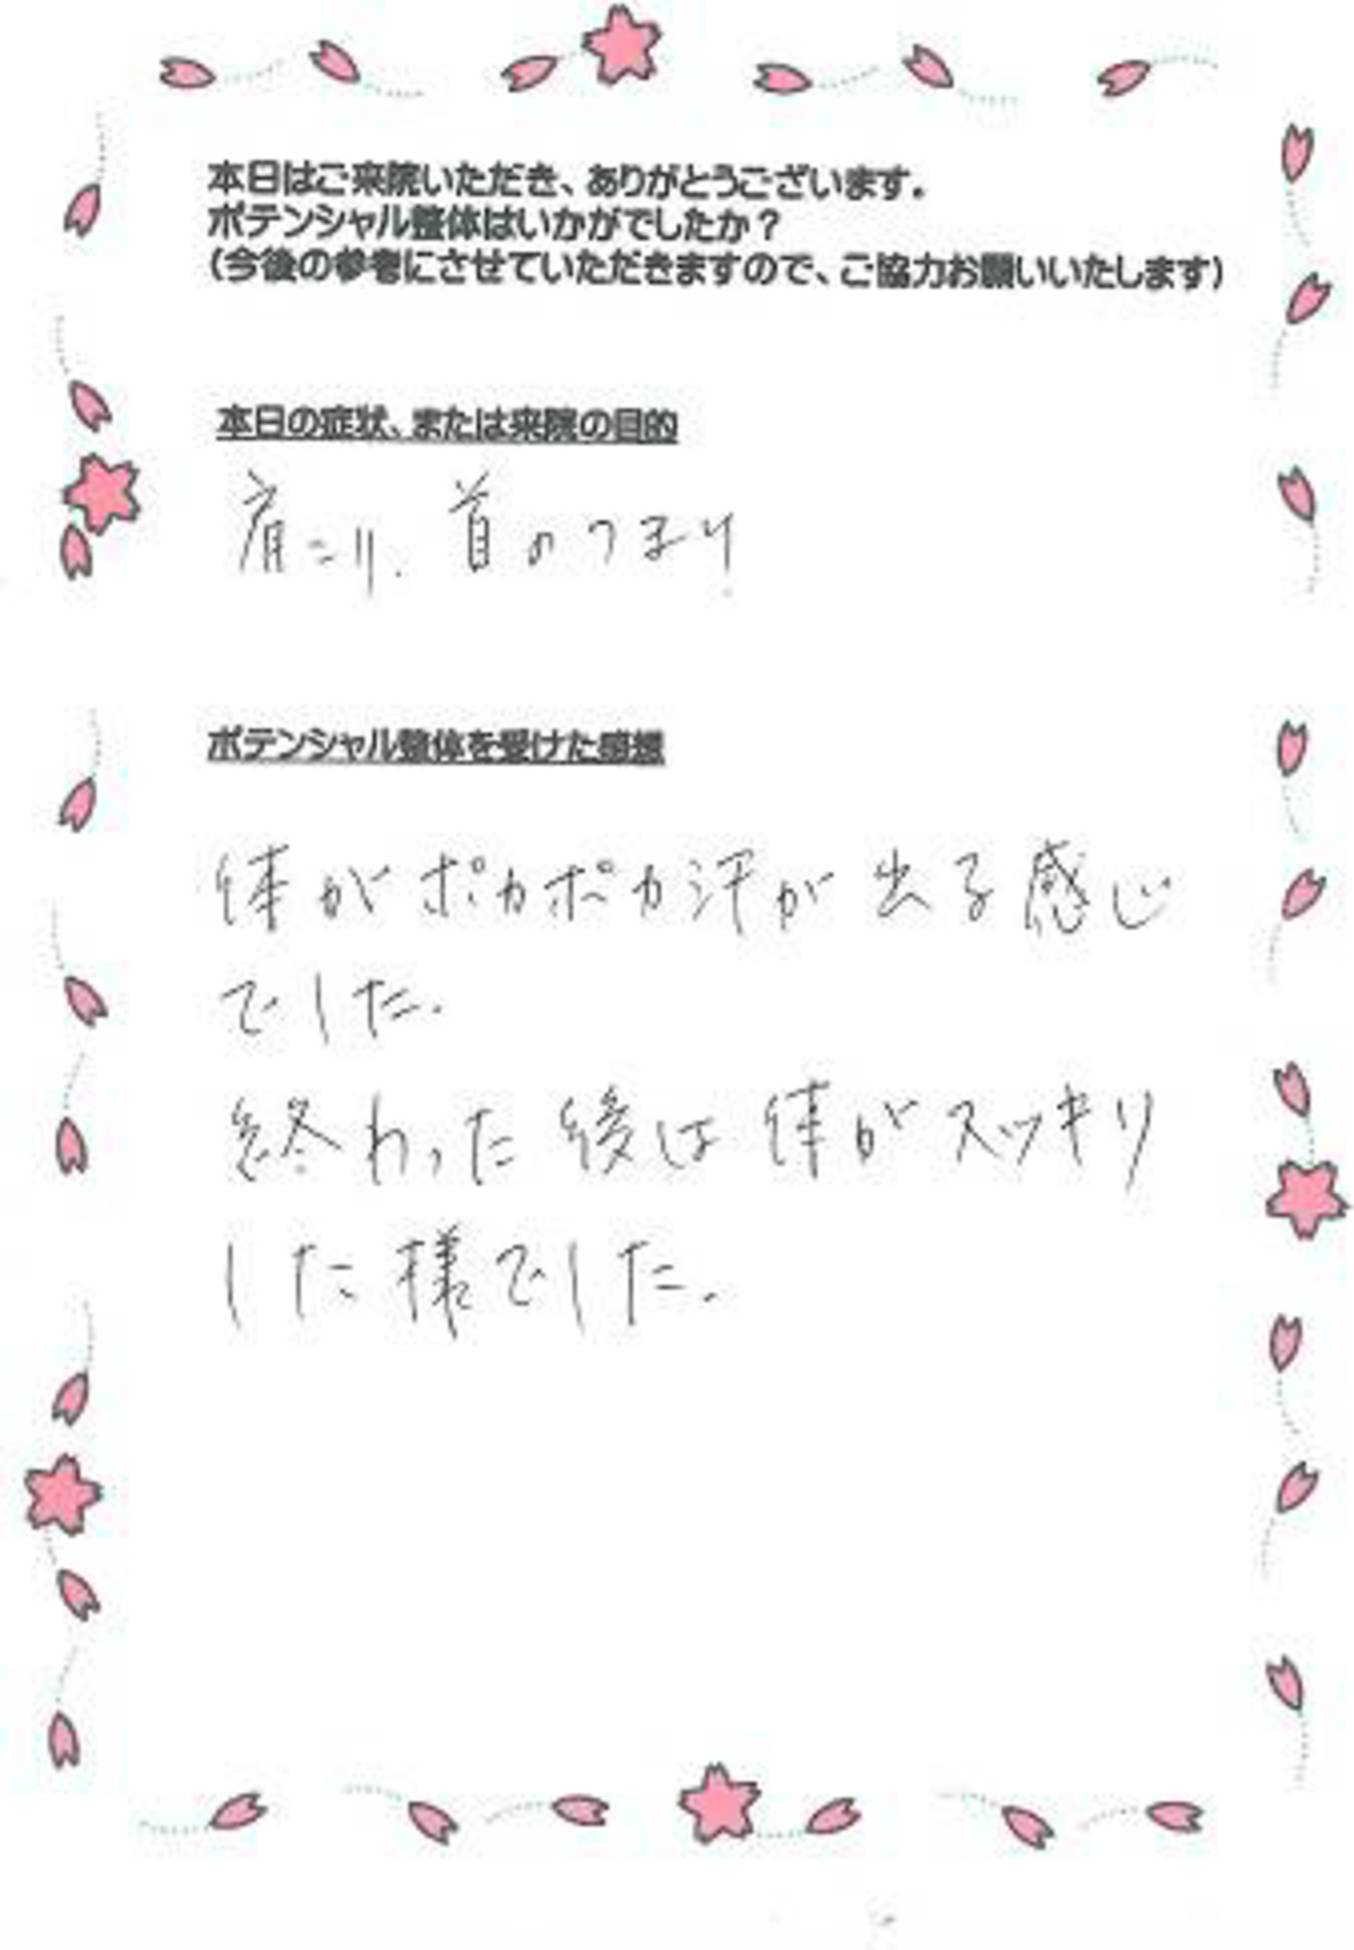 本日はご来院いただき、ありがとうございます。
ポテンシャル整体はいかがでしたか?
(今後の参考にさせていただきますので、ご協力お願いいたします)
本日の症状、または来院の目的
肩こり、首のつまり
ポテンシャル整体を受けた感想
体がポカポカ汗が出る感じ
でした。
終わった後は体がスッキリ
した様でした。